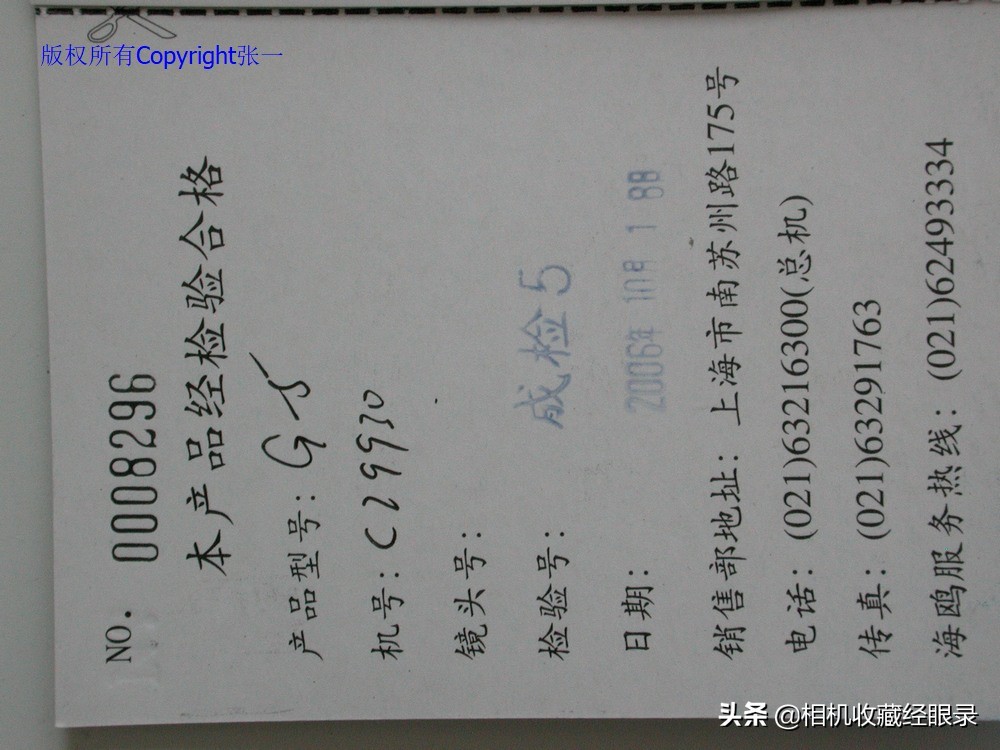 版权所有Copyright张一
NO. 0008296
本产品经检验合格
产品型号：G-5
机号：C29930
镜头号：
检验号： 成检5
日期： 2006年 10月 1 88
销售部地址：上海市南苏州路175号
电话：(021)63216300(总机)
传真：(021)63291763
海鸥服务热线：(021)62493334
头条 @相机收藏经眼录